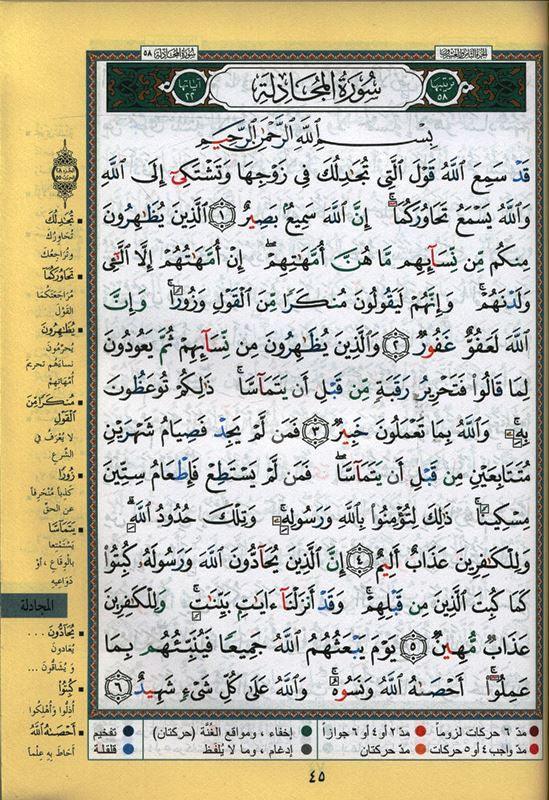 سُورَةُ المُجَادلة ٥٨
الجزء الثامن والعشرون
ترتيبها ٥٨
سُورَةُ المُجَادلَةِ
آياتها ٢٢
بِسْمِ ٱللَّهِ ٱلرَّحْمَٰنِ ٱلرَّحِيمِ
قَدْ سَمِعَ ٱللَّهُ قَوْلَ ٱلَّتِى تُجَٰدِلُكَ فِى زَوْجِهَا وَتَشْتَكِىٓ إِلَى ٱللَّهِ
وَٱللَّهُ يَسْمَعُ تَحَاوُرَكُمَآ ۚ إِنَّ ٱللَّهَ سَمِيعٌۢ بَصِيرٌ ١ ٱلَّذِينَ يُظَٰهِرُونَ
مِنكُم مِّن نِّسَآئِهِم مَّا هُنَّ أُمَّهَٰتِهِمْ ۖ إِنْ أُمَّهَٰتُهُمْ إِلَّا ٱلَّٰٓـِٔى
وَلَدْنَهُمْ ۚ وَإِنَّهُمْ لَيَقُولُونَ مُنكَرًا مِّنَ ٱلْقَوْلِ وَزُورًا ۚ وَإِنَّ
ٱللَّهَ لَعَفُوٌّ غَفُورٌ ٢ وَٱلَّذِينَ يُظَٰهِرُونَ مِن نِّسَآئِهِمْ ثُمَّ يَعُودُونَ
لِمَا قَالُوا۟ فَتَحْرِيرُ رَقَبَةٍ مِّن قَبْلِ أَن يَتَمَآسَّا ۚ ذَٰلِكُمْ تُوعَظُونَ
بِهِۦ ۚ وَٱللَّهُ بِمَا تَعْمَلُونَ خَبِيرٌ ٣ فَمَن لَّمْ يَجِدْ فَصِيَامُ شَهْرَيْنِ
مُتَتَابِعَيْنِ مِن قَبْلِ أَن يَتَمَآسَّا ۖ فَمَن لَّمْ يَسْتَطِعْ فَإِطْعَامُ سِتِّينَ
مِسْكِينًا ۚ ذَٰلِكَ لِتُؤْمِنُوا۟ بِٱللَّهِ وَرَسُولِهِۦ ۚ وَتِلْكَ حُدُودُ ٱللَّهِ ۗ
وَلِلْكَٰفِرِينَ عَذَابٌ أَلِيمٌ ٤ إِنَّ ٱلَّذِينَ يُحَآدُّونَ ٱللَّهَ وَرَسُولَهُۥ كُبِتُوا۟
كَمَا كُبِتَ ٱلَّذِينَ مِن قَبْلِهِمْ ۚ وَقَدْ أَنزَلْنَآ ءَايَٰتٍۭ بَيِّنَٰتٍ ۚ وَلِلْكَٰفِرِينَ
عَذَابٌ مُّهِينٌ ٥ يَوْمَ يَبْعَثُهُمُ ٱللَّهُ جَمِيعًا فَيُنَبِّئُهُم بِمَا
عَمِلُوٓا۟ ۚ أَحْصَىٰهُ ٱللَّهُ وَنَسُوهُ ۚ وَٱللَّهُ عَلَىٰ كُلِّ شَىْءٍ شَهِيدٌ ٦
تُجَادِلُكَ
تُحَاوِرُكَ
وتُرَاجِعُكَ
تَحَاوُرَكُمَا
مُرَاجَعَتَكُمَا
القَوْلَ
يُظَاهِرُونَ
يُحرِّمُونَ
نساءَهُم تحريمَ
أُمَّهَاتِهِمْ
مُنكَرًا مِّنَ
القَوْلِ
لا يُعْرَفُ في
الشرع
زُورًا
كَذِباً مُنْحَرِفاً
عن الحقّ
يَتَمَآسَّا
يَسْتَمْتِعَا
بالوِقَاعِ ، أَوْ
دَوَاعِيهِ
المجادلة
يُحَآدُّونَ ...
يُعَادونَ
وَ يُشَاقُّونَ ...
كُبِتُوا
أُذِلُّوا وَأُهْلِكُوا
أَحْصَاهُ اللَّهُ
أَحَاطَ بِهِ عِلْماً
مدّ ٦ حركات لزوماً
مدّ ٢ أو ٤ أو ٦ جوازاً
إخفاء ، ومواقع الغُنَّة (حركتان)
تفخيم
مدّ واجب ٤ أو ٥ حركات
مدّ حركتان
إدغام ، وما لا يُلفَظ
قلقلة
٤٥